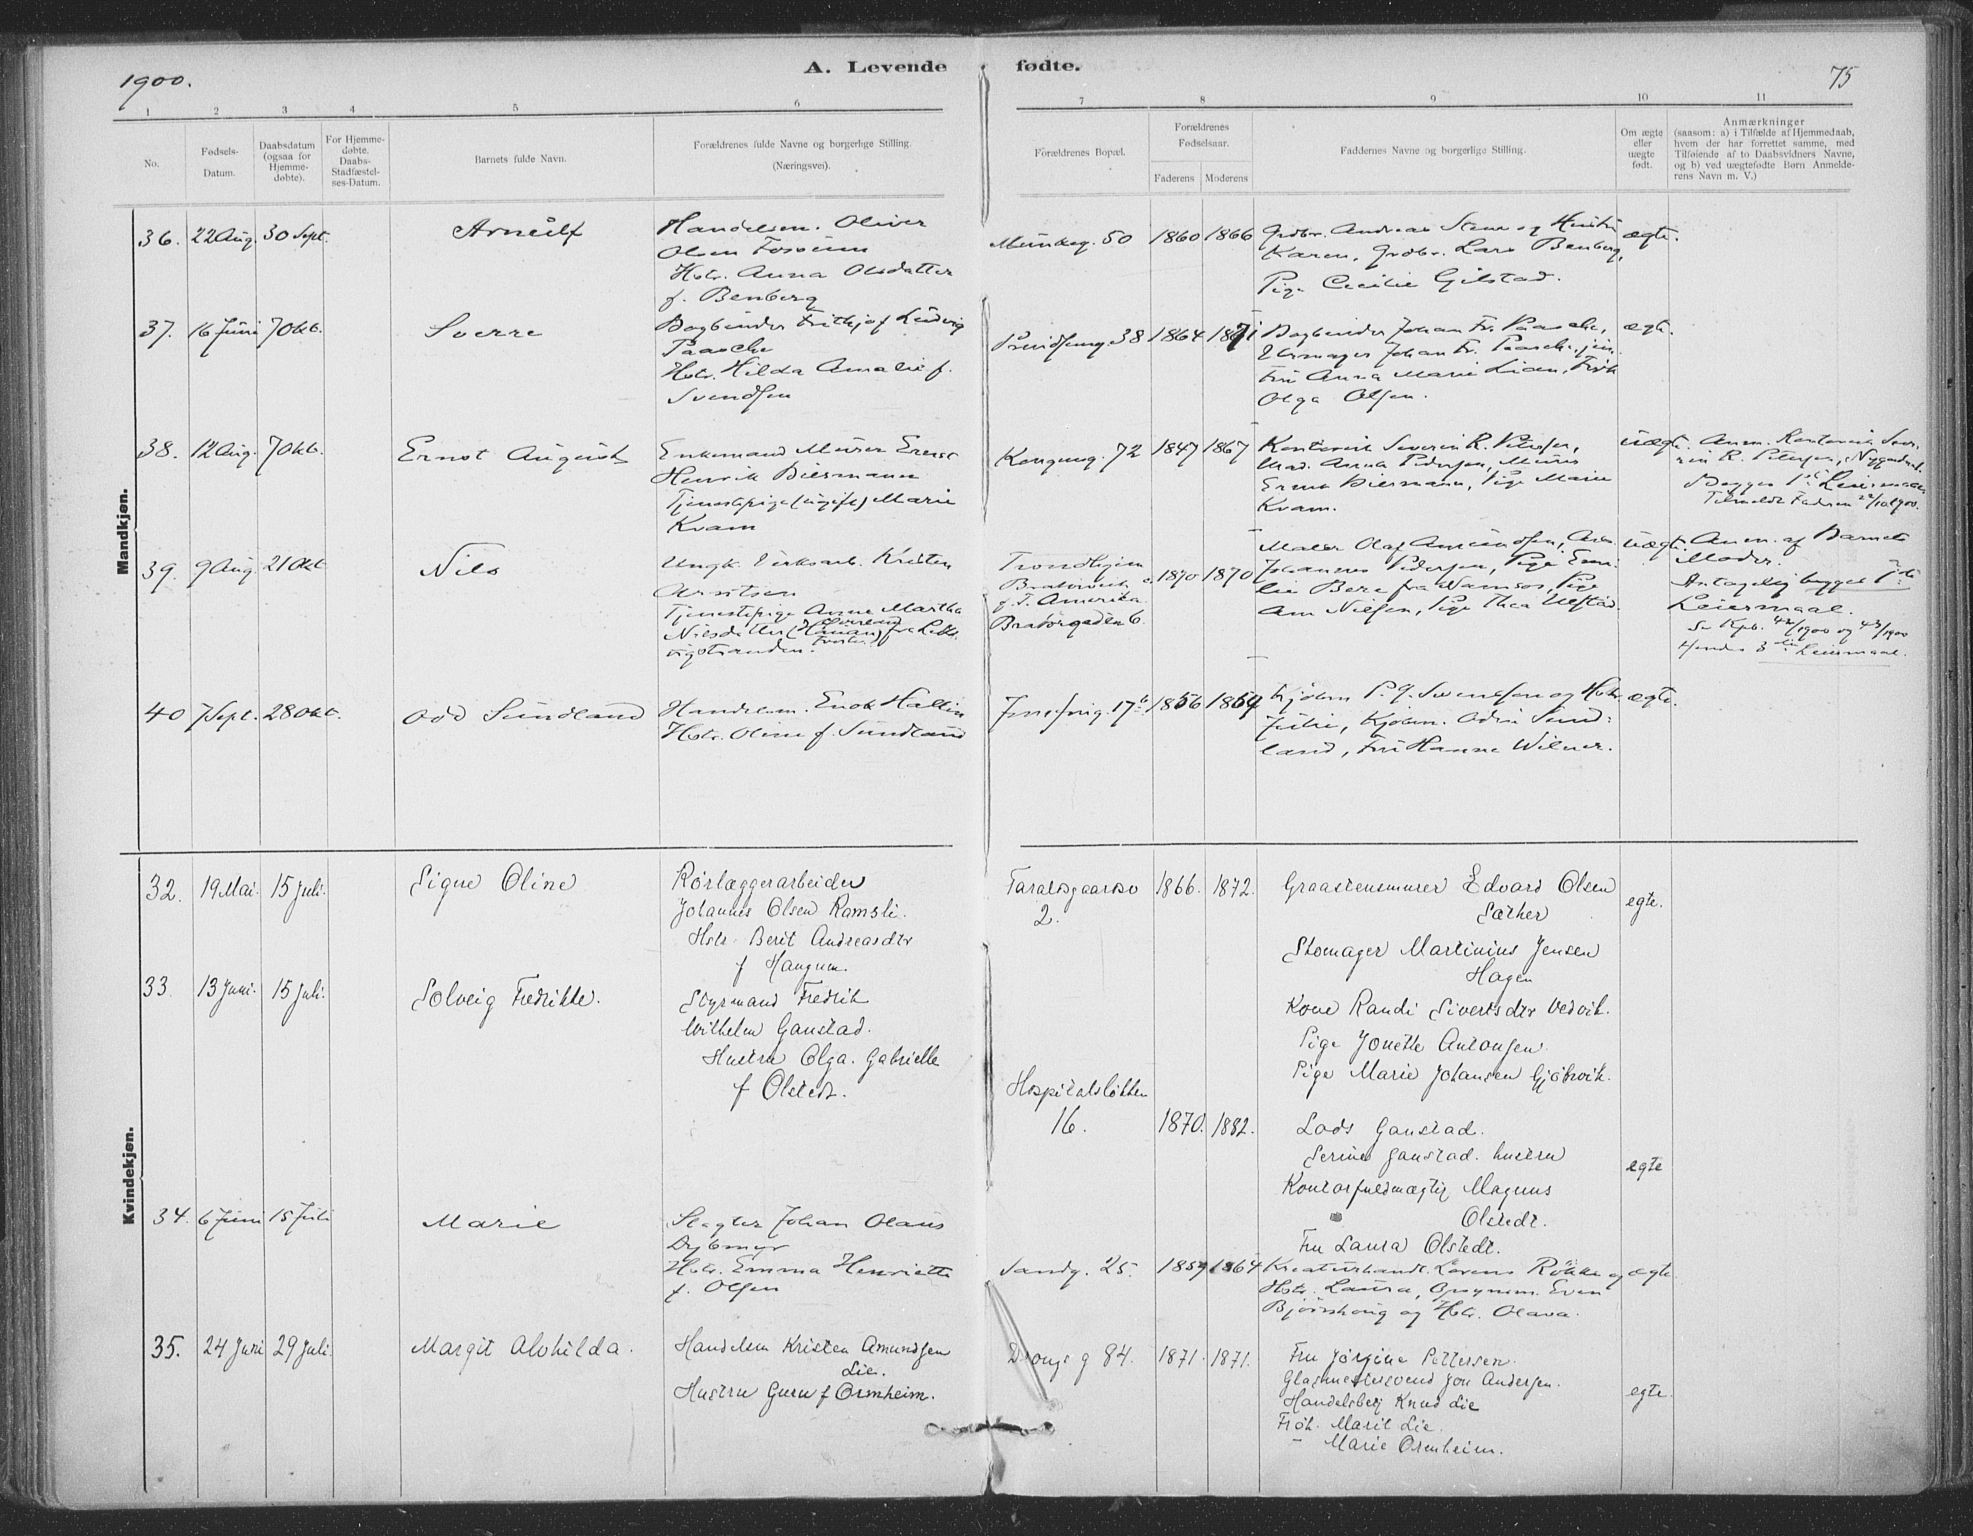 1900.
A. Levende fødte.
75
1 2 3 4 5 6 7 8 9 10 11
No.
Fødsels-
Datum.
Daabsdatum
(ogsaa for
Hjemme-
døbte).
For Hjemme-
døbte.
Daabs-
Stadfæstel-
ses-Datum.
Barnets fulde Navn.
Forældrenes fulde Navne og borgerlige Stilling.
(Næringsvei).
Forældrenes Bopæl.
Forældrenes
Fødselsaar.
Faderens Moderens
Faddernes Navne og borgerlige Stilling.
Om ægte
eller
uægte
født.
Anmærkninger
(saasom: a) i Tilfælde af Hjemmedaab,
hvem der har forrettet samme, med
Tilføiende af to Daabsvidners Navne,
og b) ved uægtefødte Børn Anmelde-
rens Navn m. V.)
Mandkjøn.
36. 22 Aug. 30 Sept. Arneulf
Handelsm. Oliver
Olsen Fosseim
Hstr. Anna Olsdatter
f. Benberg
Munkeg. 50 1860 1866
Grdbr. Andreas Stene og Hustru
Karen, Grdbr. Lars Benberg,
Pige Cecilie Gilstad.
ægte.
37. 16 Juni 7 Okt. Sverre
Bogbinder Frithjof Ludvig
Paasche
Hstr. Hilda Amalie f.
Svendsen
38 1864 1871
Bogbinder Johan Fr. Paasche,
Uhrmager Johan Fr. Paasche jun.
Fru Anna Marie Lian, Frøk
Olga Olsen.
ægte.
38. 12 Aug. 7 Okt. Ernst August
Enkemand Murer Ernst
Henrik Biermann
Tjenestepige (ugift) Marie
Kvam
Kongensg. 72 1847 1867
Kontorist Severin R. Petersen,
Mad. Anna Pedersen, Murer
Ernst Biermann, Pige Marie
Kvam.
uægte.
Anm. Kontorist Seve-
rin R. Petersen,
Begges 1ste Leiermaal
Tilmeldt Faderen 22/10 1900.
39. 9 Aug. 21 Okt. Nils
Ungk. Kristen
Arntsen
Tjenestepige Anne Martha
Nilsdatter
Trondhjem
f. T. Amerika
Bratørgaden 6.
1870 1870
Maler Olaf Amundsen, Arb.
Johannes Pedersen, Pige Emi-
lie Berg fra Namsos, Pige
Ane Nilsen, Pige Thea Ulstad.
uægte.
Anm. af Barnets
Moder.
Antagelig begges 1ste
Leiermaal.
Se Kpb. 42/1900 og 43/1900
Hendes 3die Leiermaal.
40 7 Sept. 28 Okt. Odd Sundland
Handelsm. Enok Hallin
Hstr. Oline f. Sundland
17b 1856 1864
Kjøbm P. J. Svendsen og Hstr
Julie, Kjøbm. Odin Sund-
land, Fru Hanna Wilner.
ægte.
Kvindekjøn.
32. 19 Mai. 15 Juli. Signe Oline
Rørlæggerarbeider
Johannes Olsen Ramsli.
Hstr. Berit Andreasdtr
f Haugum.
Taraldsgaardsv
2.
1866. 1872.
Graastensmurer Edvard Olsen
Sæther
Skomager Martinius Jensen
Hagen
Kone Randi Sivertsdtr Vedvik.
Pige Jonette Antonsen.
Pige Marie Johansen Gjøbvik.
egte.
33. 13 Juni. 15 Juli. Solveig Fredrikke.
Styrmand Fredrik
Wilhelm Ganstad.
Hustru Olga. Gabrielle
f Olstedt.
Hospitalsløkken
16.
1870. 1882.
Lods Ganstad.
Serine Ganstad. hustru
Kontorfuldmægtig Magnus
Olstedt.
Fru Laura Olstedt.
egte
34. 6 Juni 15 Juli Marie
Slagter Johan Olaus
Dybmyr
Hstr. Emma Henriette
f. Olsen
Sandg. 25. 1859 1864
Kreaturhandl. Lorens Røkke og
Hstr. Laura, Opsynsm. Even
Bjørshoug og Hstr. Olava.
ægte
35. 24 Juni 29 Juli. Margit Alvhilda.
Handelsm Kristen Amundsen
Lie.
Hustru Guru f Ormheim.
Dronn g 84. 1871. 1871.
Fru Jørgine Pettersen.
Glasmestersvend Jon Andersen.
Handelsbetj Knud Lie
Frøk. Marit Lie.
– Marie Ormheim.
egte.